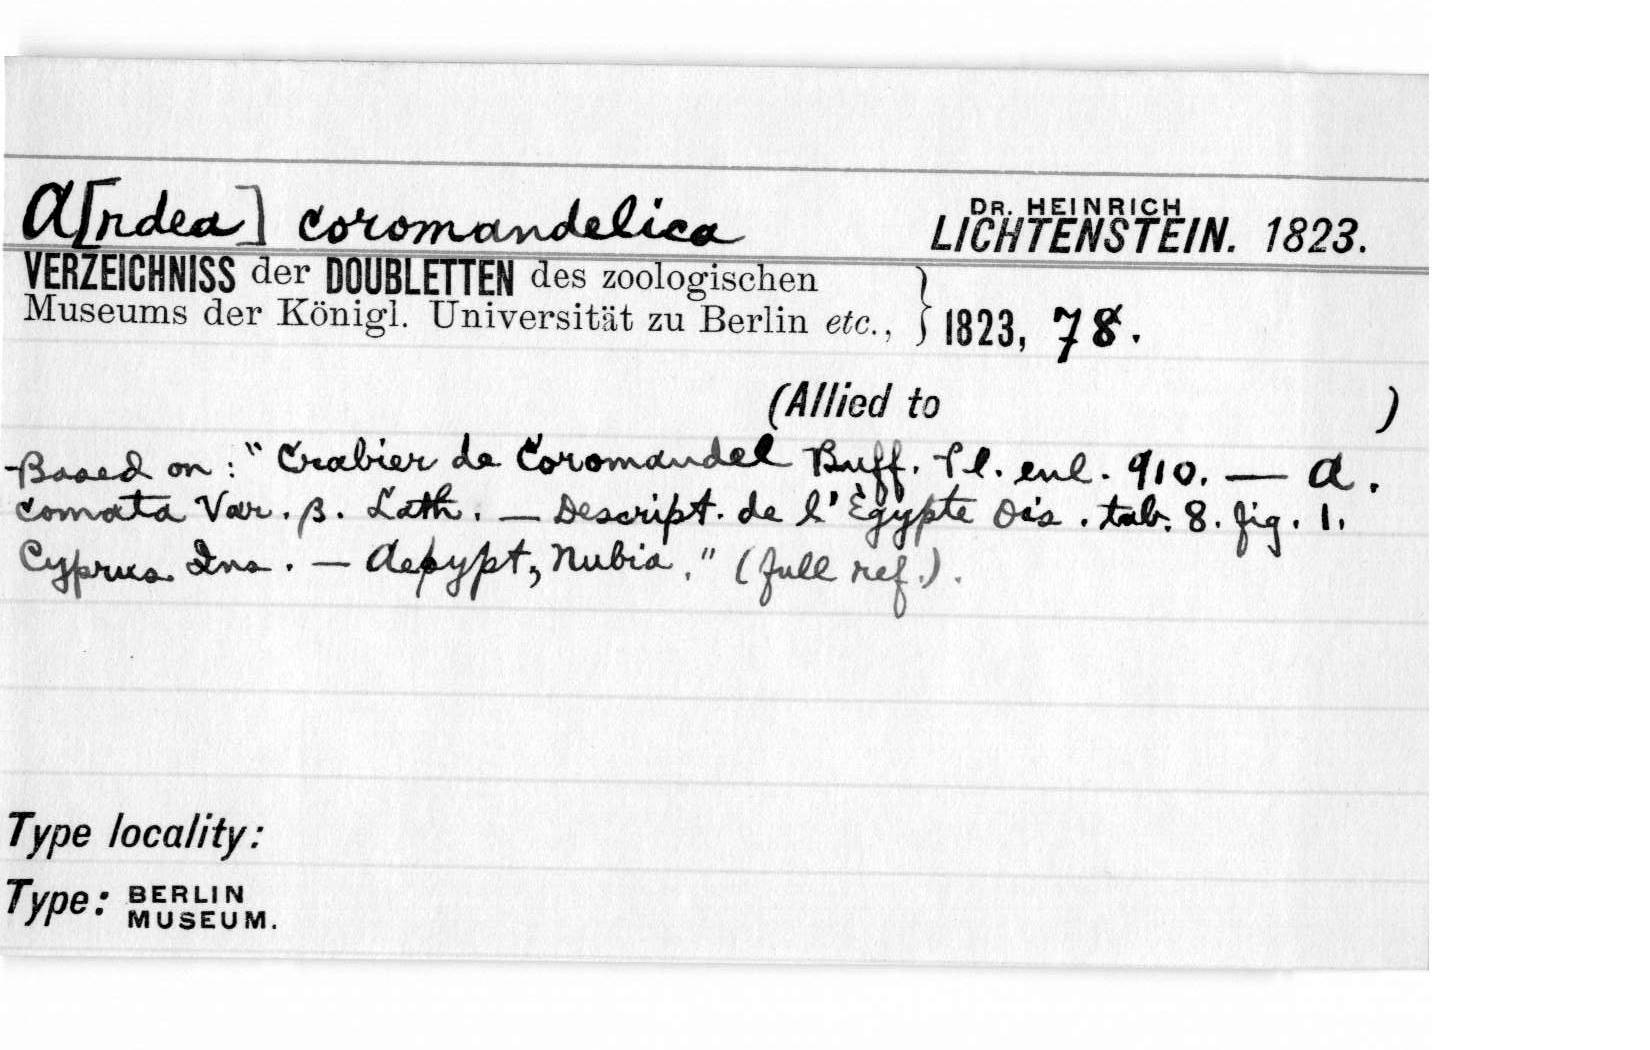 A[rdea] coromandelica
DR. HEINRICH
LICHTENSTEIN. 1823.
VERZEICHNISS der DOUBLETTEN des zoologischen
Museums der Königl. Universität zu Berlin etc., } 1823, 78.
(Allied to )
Based on: "Crabier de Coromandel Buff. Pl. enl. 910. — A.
comata Var. β. Lath. — Descript. de l'Égypte Ois. tab. 8. fig. 1.
Cyprus Ins. — Aepypt, Nubia." (full ref.).
Type locality:
Type: BERLIN
MUSEUM.